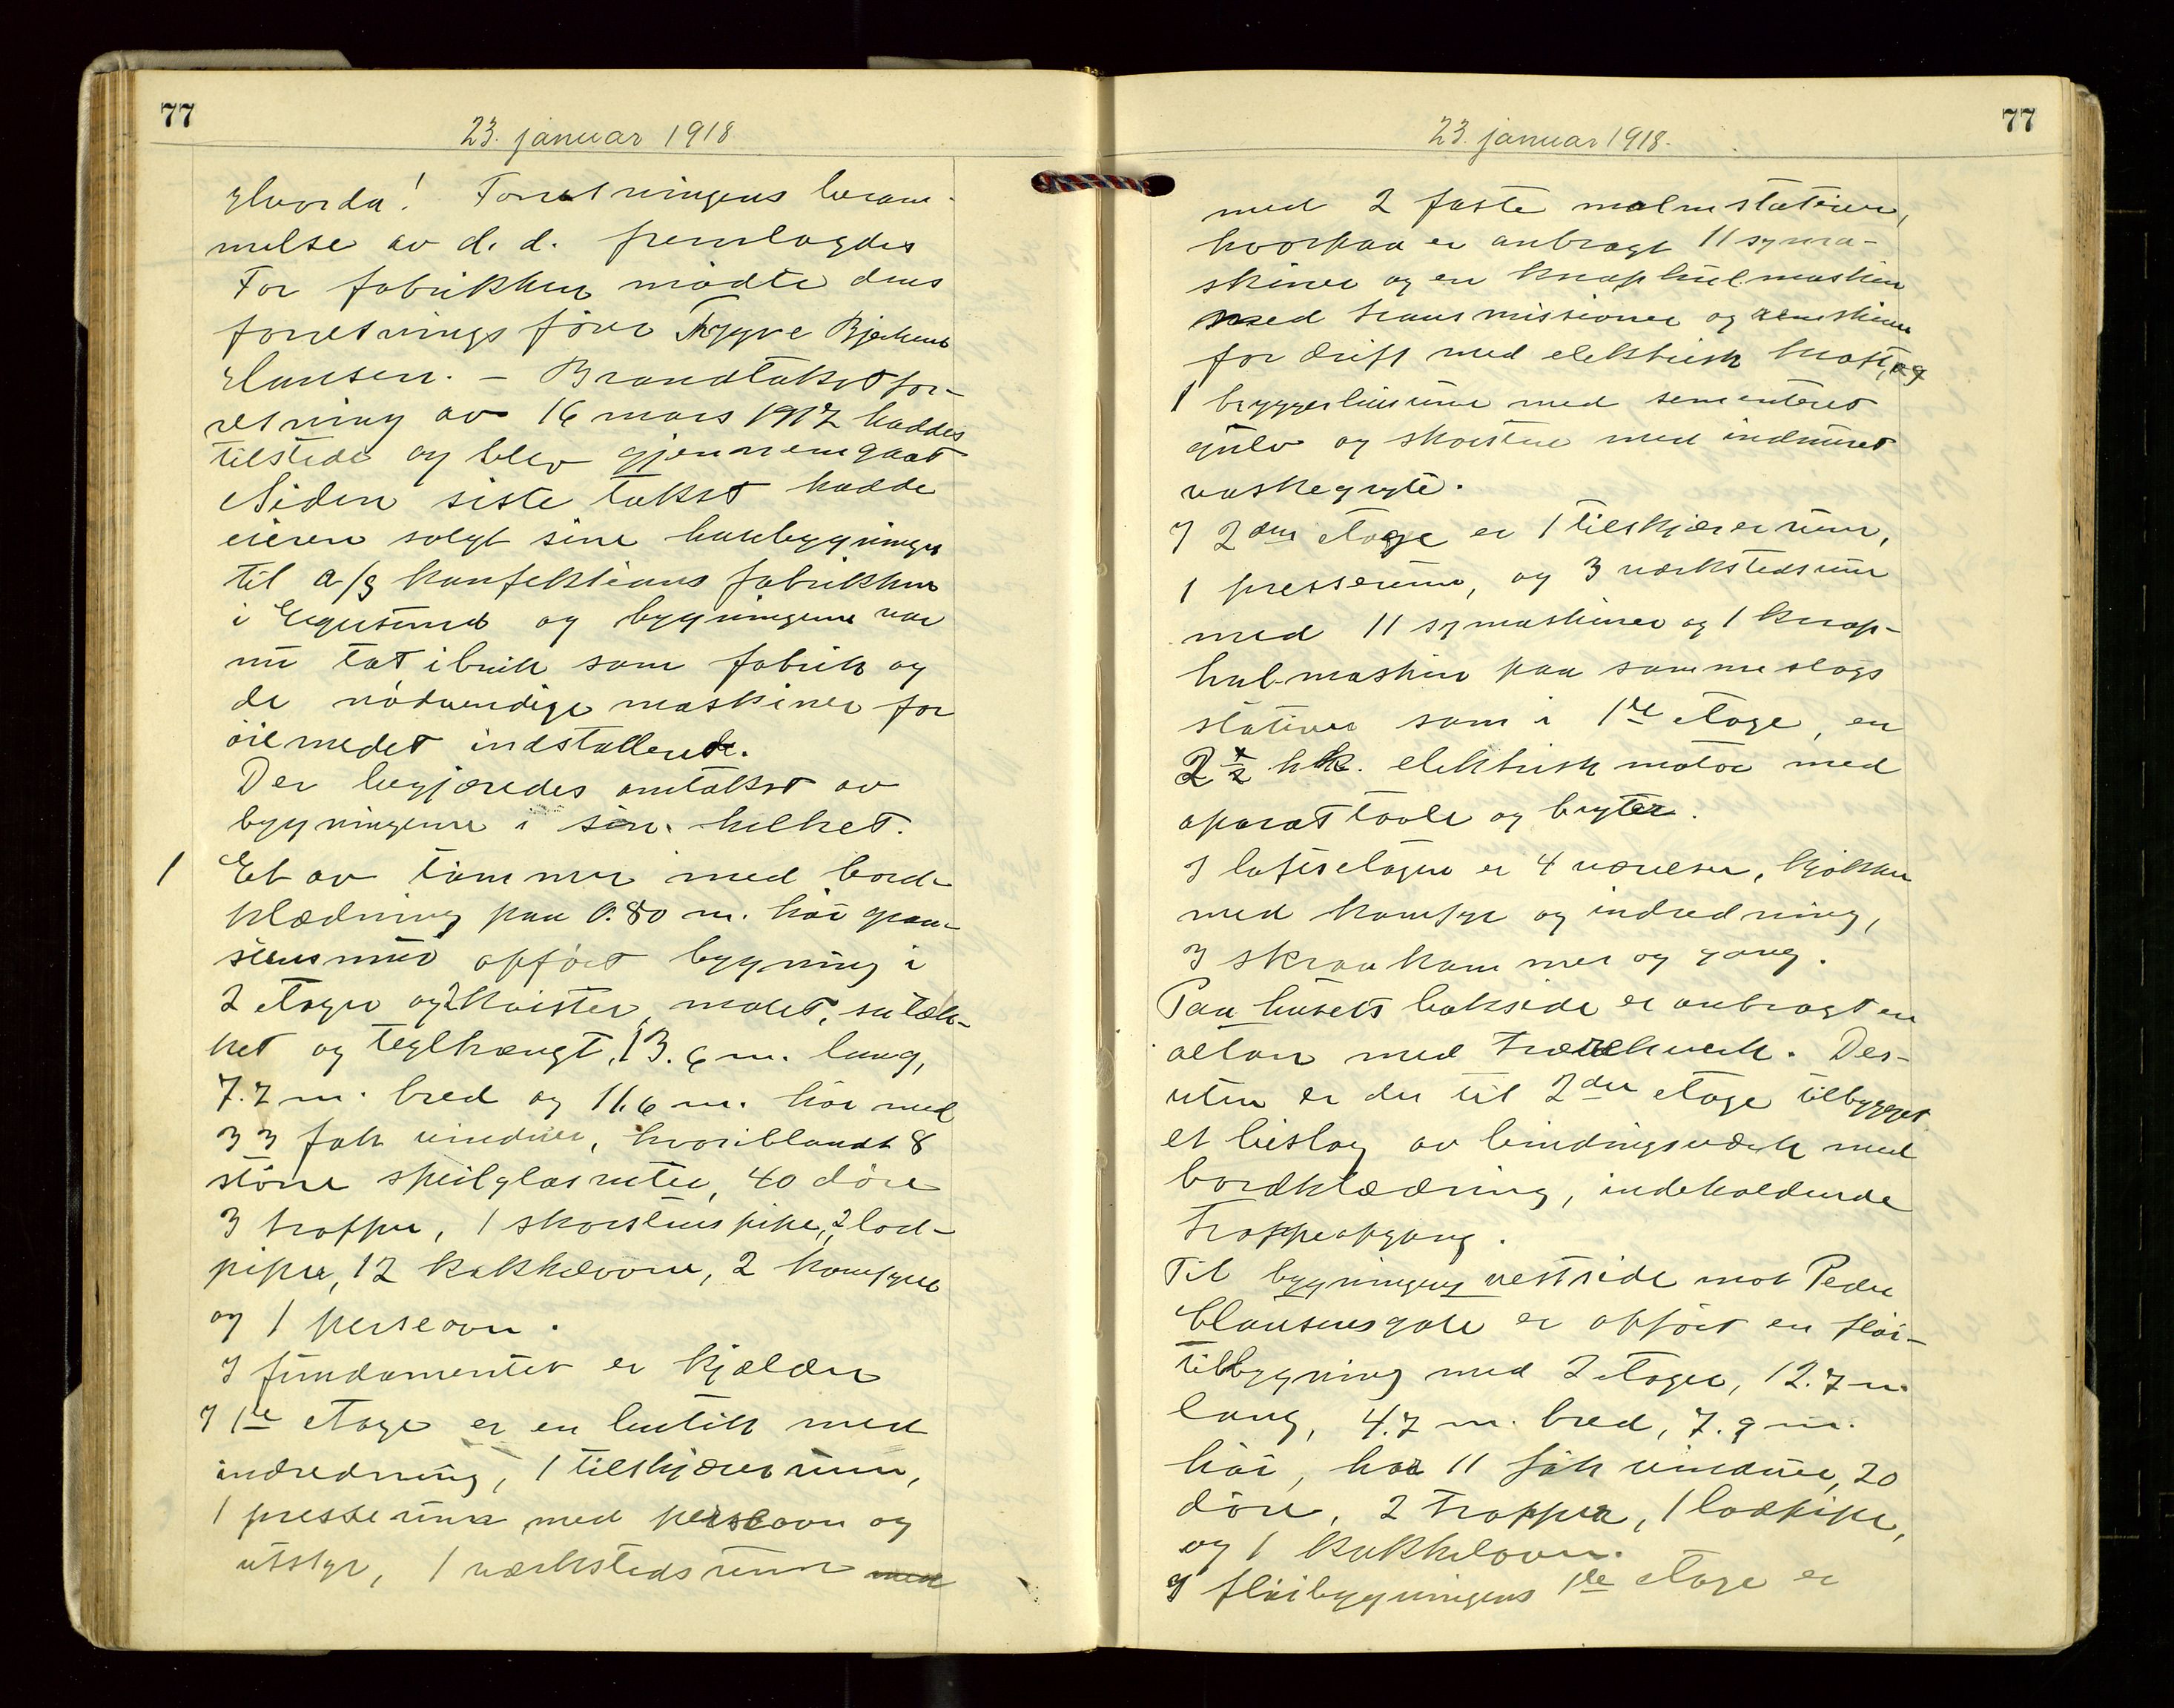 77
23. januar 1918
Hvorda! Forretningens beram-
melse av d. d. fremlagdes
For fabrikken mødte dens
forretningsfører Trygve Bjerkens
Hansen. – Brandtakstfor-
retning av 16 mars 1917 haddes
tilstede og blev gjennemgaat
Siden siste takst hadde
eieren solgt sine husbygninger
til a/s konfektions fabrikken
i Egersund og bygningerne var
nu tat i bruk som fabrik og
de nødvendige maskiner for
øiemedet indstallerede.
Der begjæredes omtakst av
bygningerne i sin helhet.
1 Et av tømmer med bord-
klædning paa 0.80 m. høi graa-
stensmur opført bygning i
2 etager og 2 kvister, malet, sutak-
ket og teglhængt, 13.6 m. lang,
7.7 m. bred og 11.6 m. høi med
33 fak vinduer, hvoriblandt 8
større speilglasruter, 40 døre
3 trapper, 1 skorstenspipe, 2 lod-
piper, 12 kakkelovne, 2 komfyrer
og 1 perseovn.
I fundamentet er kjælder
I 1ste etage er en butik med
indredning, 1 tilskjærerrum,
1 presserum med perseovn og
utstyr, 1 verkstedsrum med
77
23. januar 1918.
med 2 faste malmstativer,
hvorpaa er anbragt 11 syma-
skiner og en knaphulmaskin
med transmissioner og remskiver
for drift med elektrisk kraft, og
1 bryggerhusrum med sementeret
gulv og skorsten med indmuret
vaskegryte.
I 2den etage er 1 tilskjærerrum,
1 presserum, og 3 verkstedsrum
med 11 symaskiner og 1 knap-
hul-maskin paa samme slags
stativer som i 1ste etage, en
2 1/2 hk. elektrisk motor med
aparattavle og bryter.
I loftsetagen er 4 værelser, kjøkken
med komfyr og indredning,
3 skraakammer og gang.
Paa husets bakside er anbragt en
altan med trærekverk. Des-
uten er der til 2den etage tilbygget
et bislag av bindingsverk med
bordklædning, indeholdende
trappeopgang.
Til bygningens vestside mot Peder
Clausensgate er opført en fløi-
tilbygning med 2 etager, 12.7 m.
lang, 4.7 m. bred, 7.9 m.
høi, har 11 fak vinduer, 20
døre, 2 trapper, 1 lodpipe,
og 1 kakkelovn.
I fløibygningens 1ste etage er